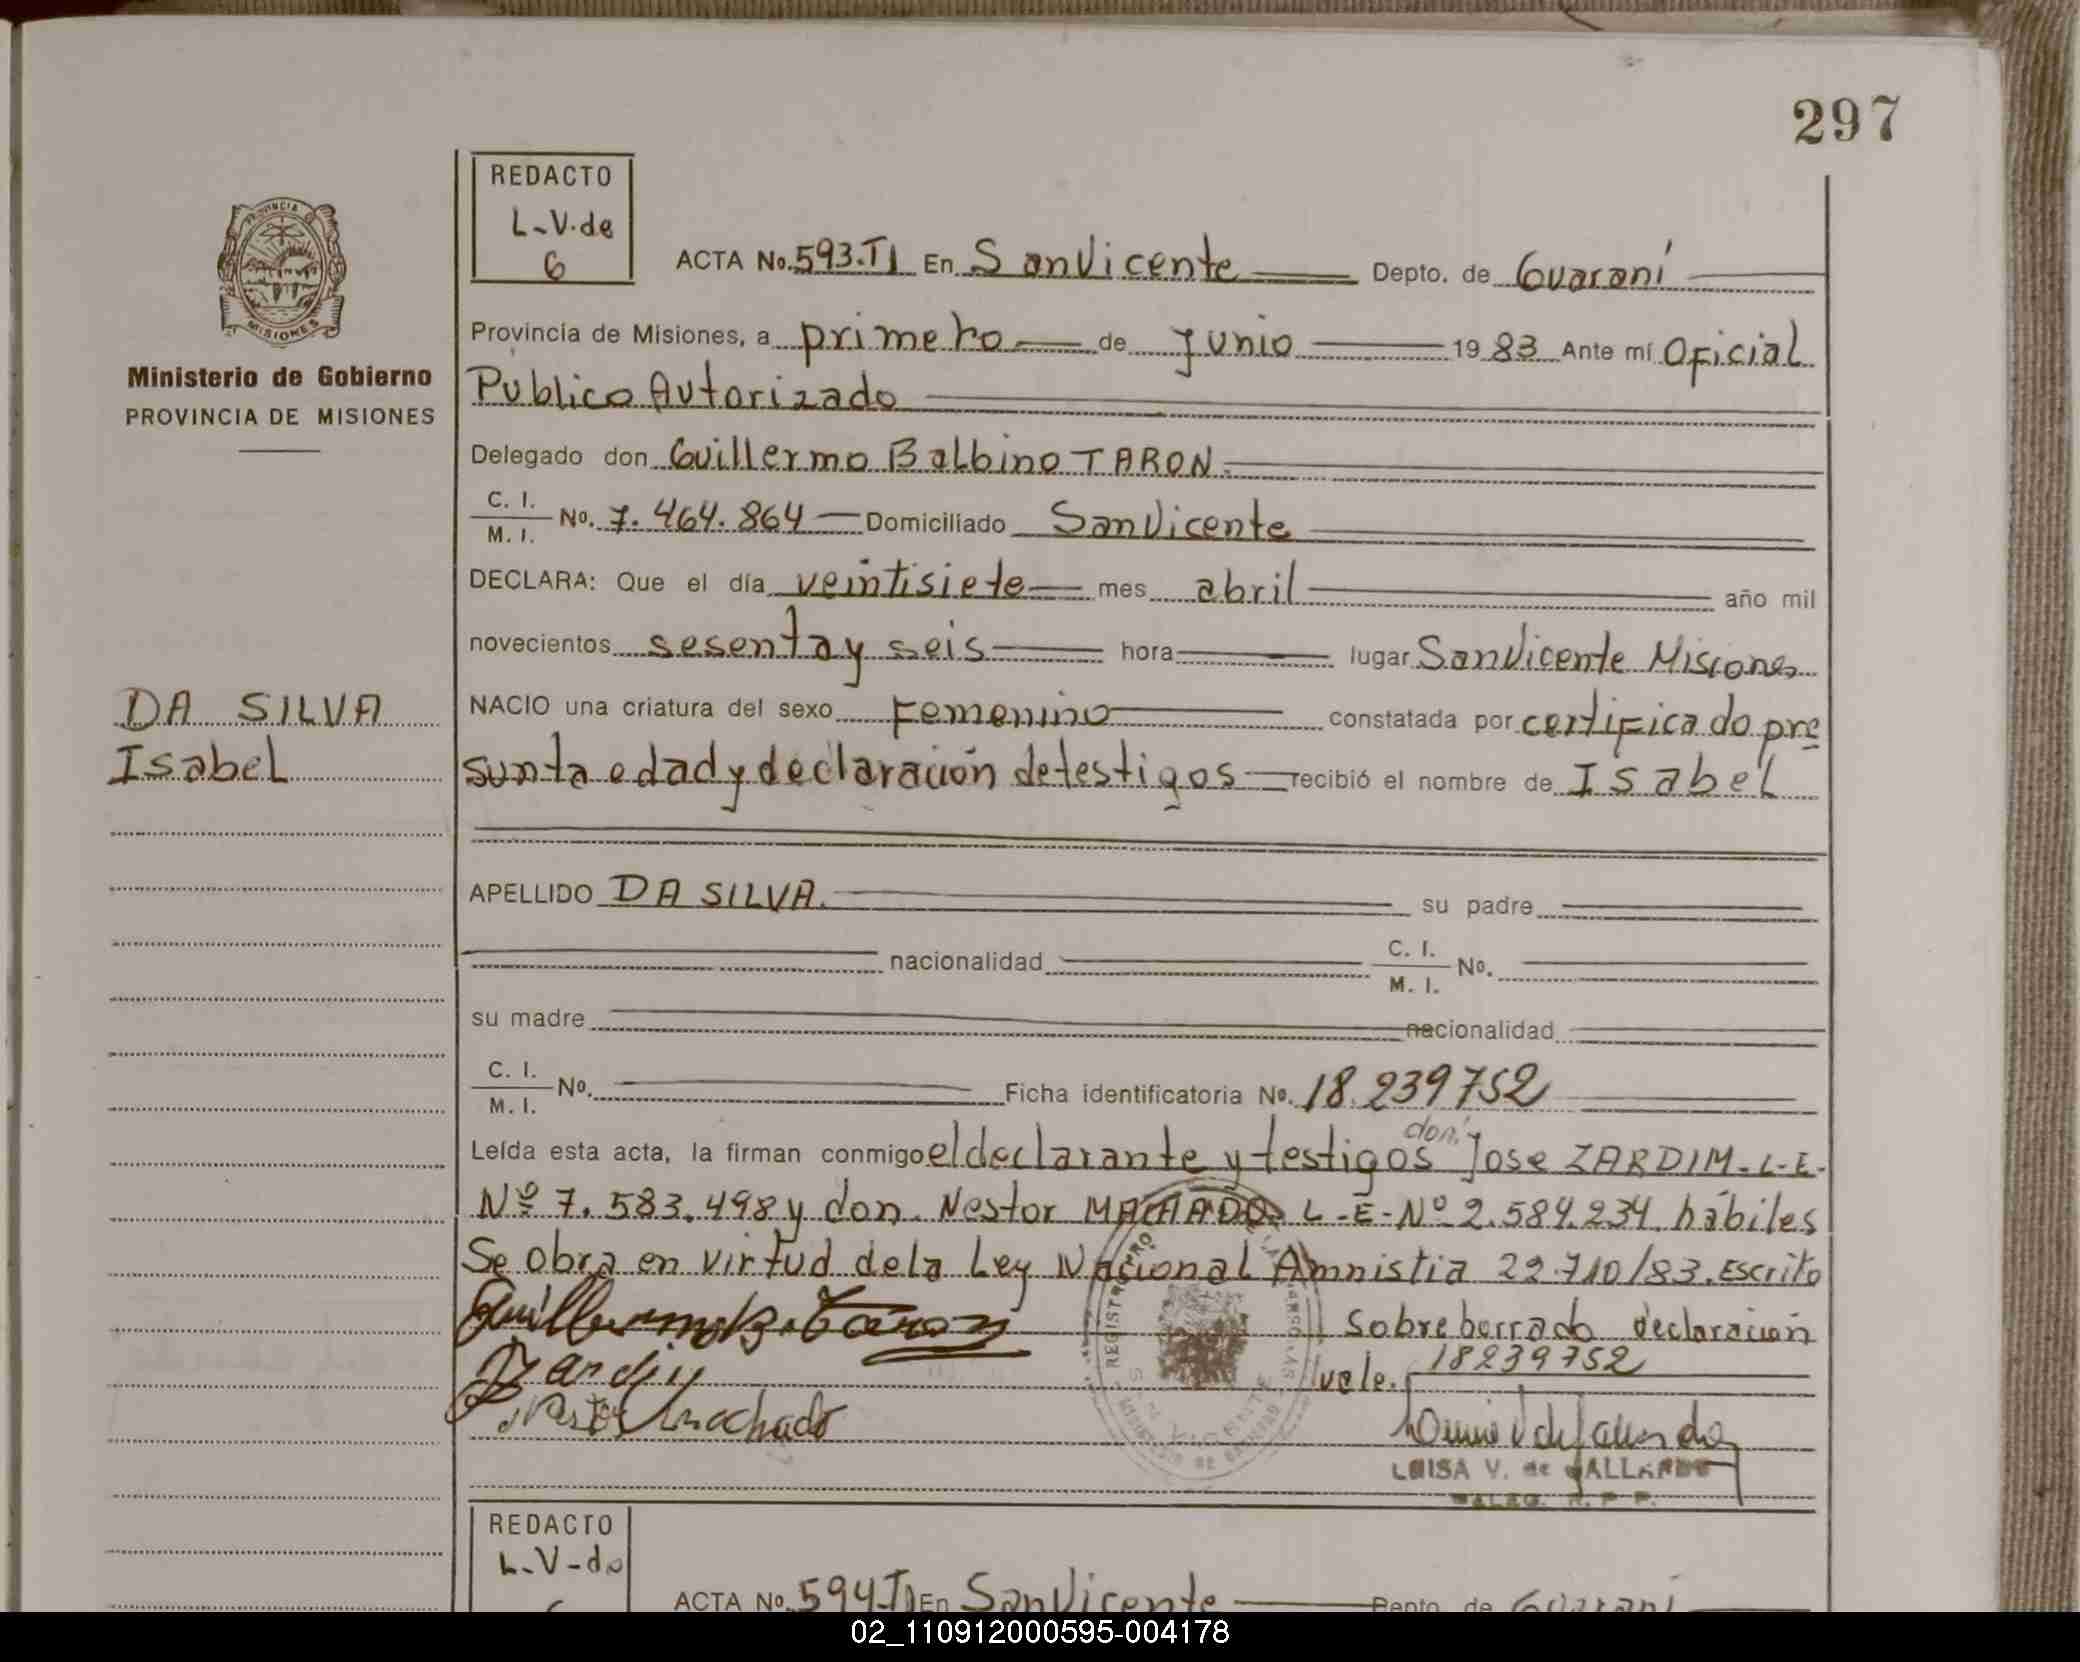 297
REDACTO
L-V. de
G
PROVINCIA
MISIONES
Ministerio de Gobierno
PROVINCIA DE MISIONES
ACTA No. 593.TI En San Vicente Depto. de Guaraní
Provincia de Misiones, a primero de junio 1983 Ante mí Oficial
Publico Autorizado
Delegado don Guillermo Balbino TARON.
C. I.
M. I.
No. 7.464.864 Domiciliado San Vicente
DECLARA: Que el día veintisiete mes abril año mil
novecientos sesenta y seis hora lugar San Vicente Misiones
DA SILVA
Isabel
NACIO una criatura del sexo Femenino constatada por certificado pre
sunta edad y declaración de testigos recibió el nombre de Isabel
APELLIDO DA SILVA. su padre
nacionalidad C. I.
M. I. No.
su madre nacionalidad
C. I.
M. I.
No. Ficha identificatoria No. 18.239752
Leída esta acta, la firman conmigo el declarante y testigos don Jose ZARDIM. L-E-
Nº 7.583.498 y don. Nestor MACHADO L-E-Nº 2.584.234. hábiles
Se obra en virtud de la Ley Nacional Amnistia 22.710/83. Escrito
Guillermo B. Taron
sobre borrado declaración
Zardin
vale. 18239752
Nestor Machado
LUISA V. de GALLARDO
REDACTO
L-V-de
ACTA No. 594-TI En San Vicente Depto. de Guaraní
02_110912000595-004178